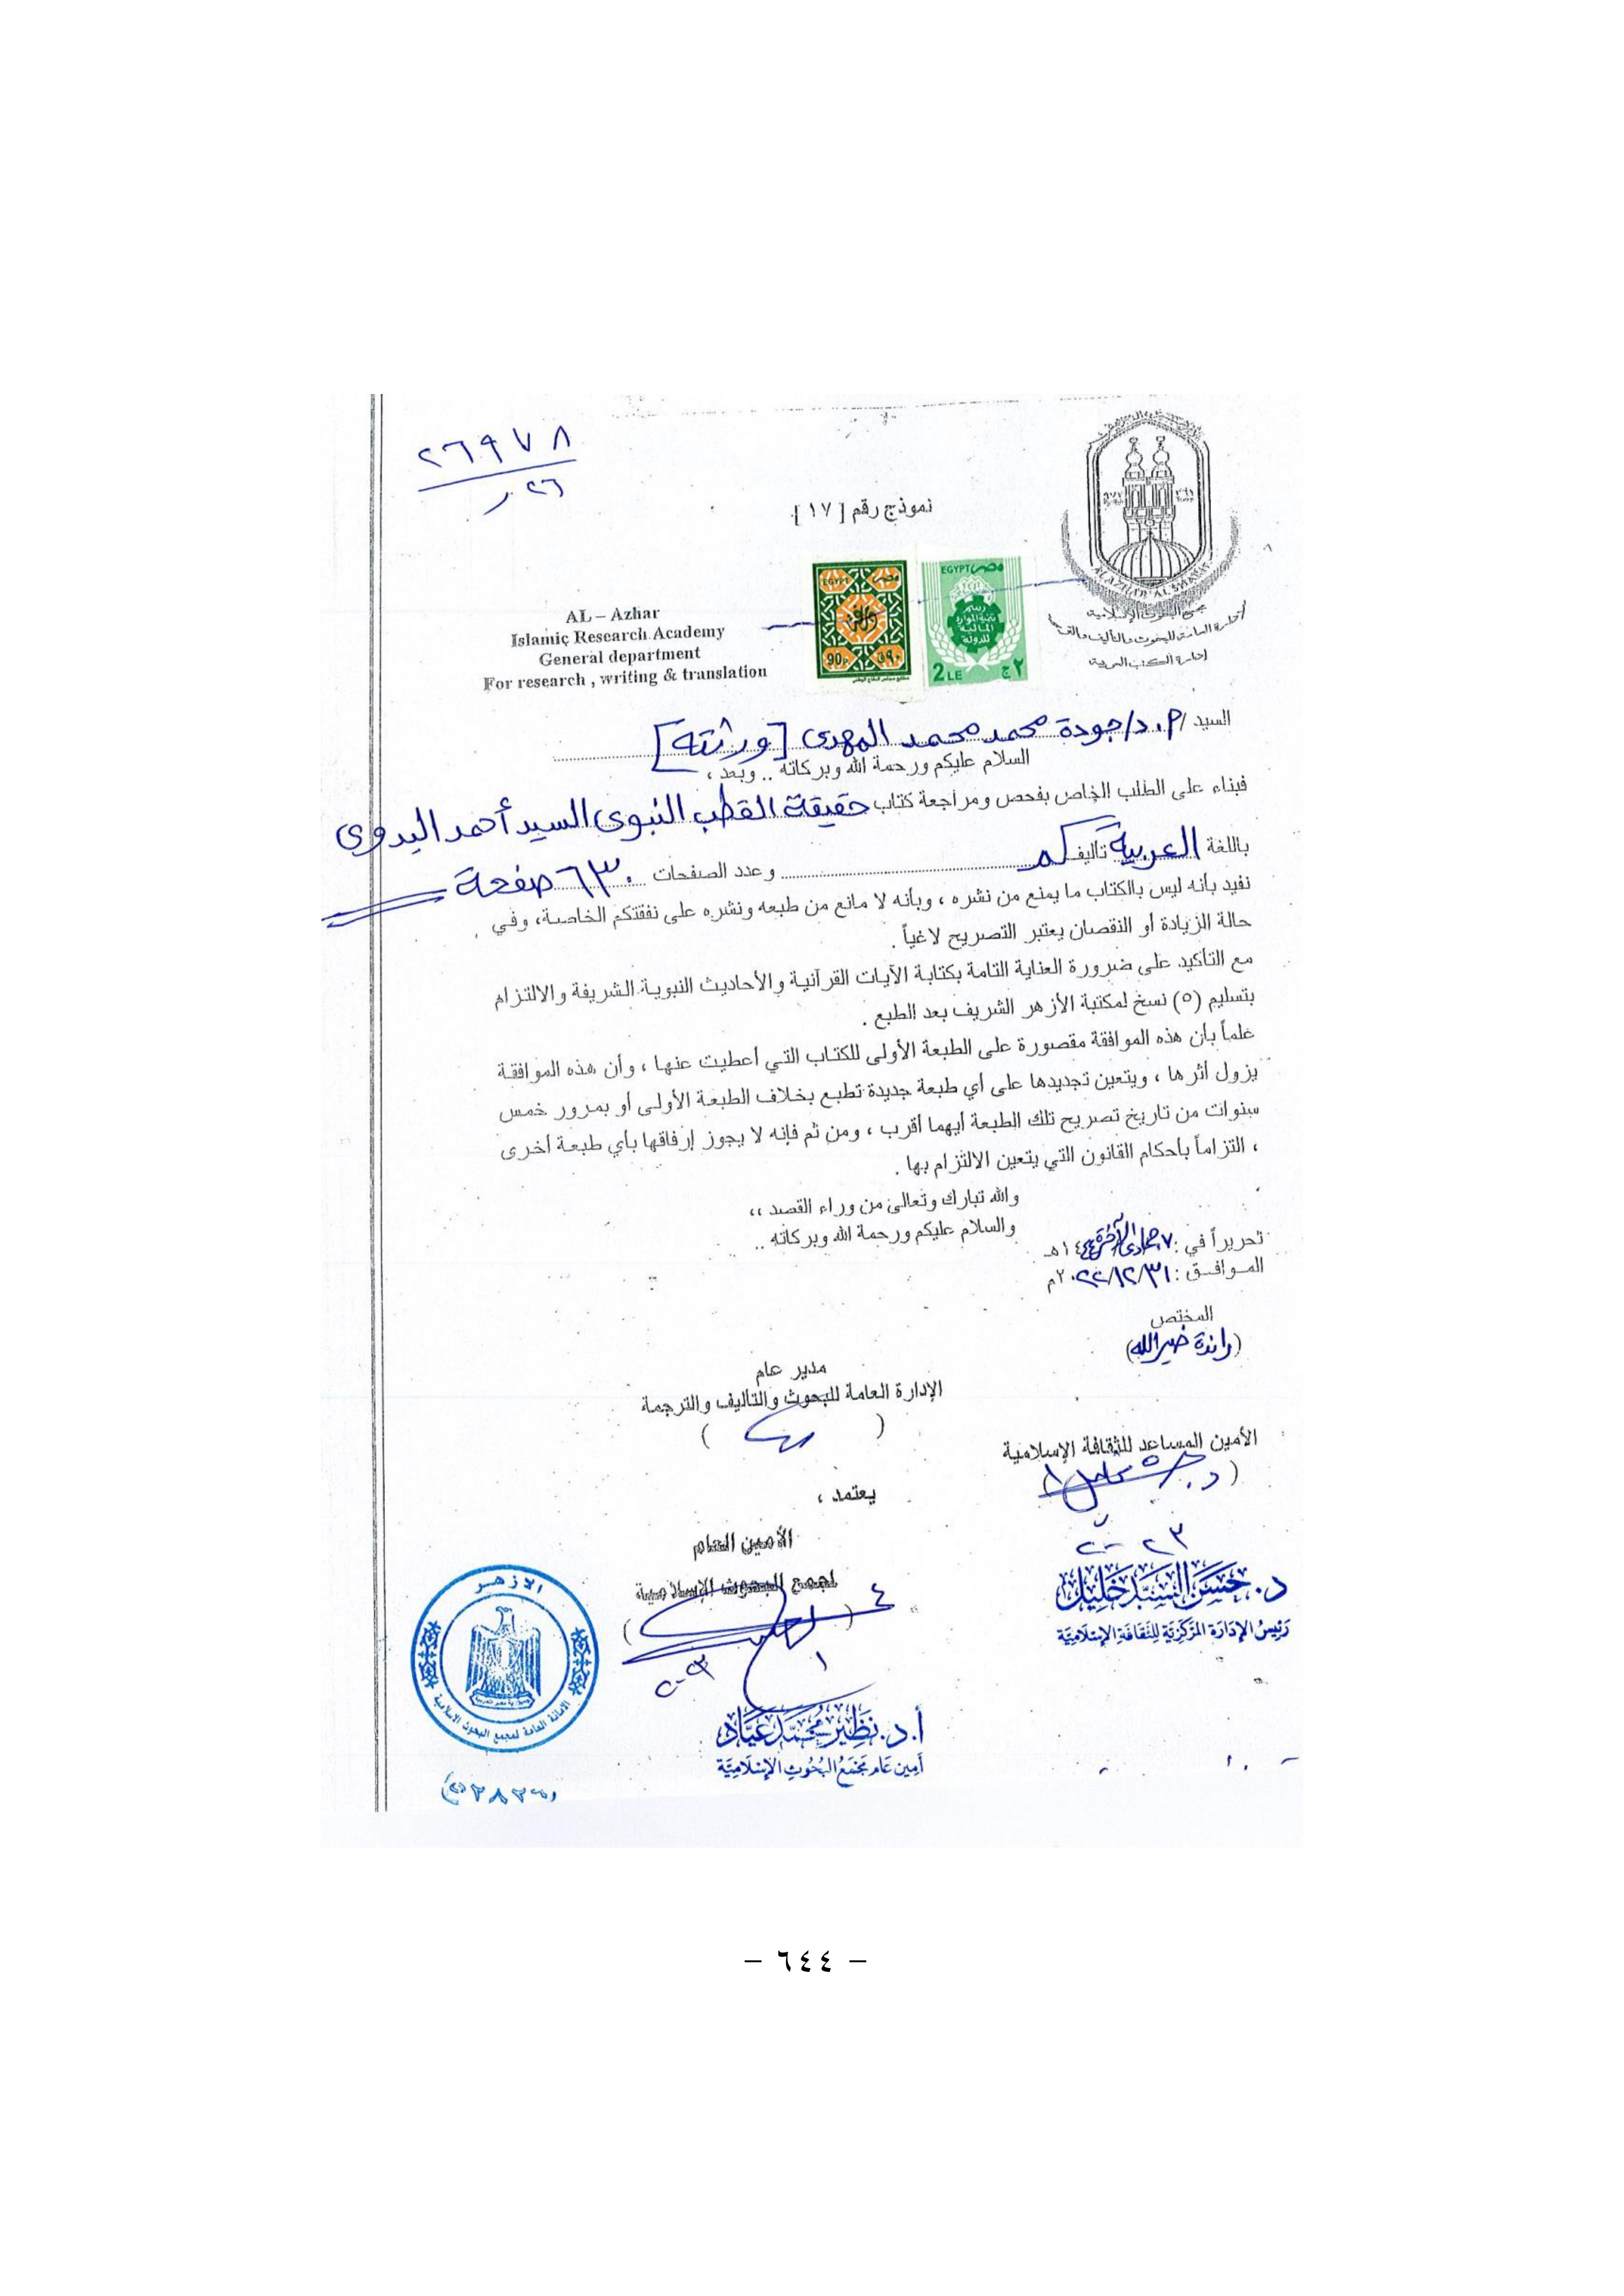 ٢٦٩٧٨
٢٦
نموذج رقم [ ١٧ ]
EGYPT مصر
90p ٩٠ق
EGYPT مصر
رسم
تنمية الموارد
المالية
للدولة
2 LE ٢ ج
مجمع البحوث الإسلامية
الإدارة العامة للبحوث والتأليف والترجمة
إدارة الكتب العربية
AL – Azhar
Islamic Research Academy
General department
For research , writing & translation
السيد / أ.د/ جودة محمد محمد المهدى [ورثته]
السلام عليكم ورحمة الله وبركاته .. وبعد ،
فبناء على الطلب الخاص بفحص ومراجعة كتاب حقيقة القطب النبوى السيد أحمد البدوى
باللغة العربية تأليف وعدد الصفحات ٦٣٠ صفحة
نفيد بأنه ليس بالكتاب ما يمنع من نشره ، وبأنه لا مانع من طبعه ونشره على نفقتكم الخاصة، وفي
حالة الزيادة أو النقصان يعتبر التصريح لاغياً .
مع التأكيد على ضرورة العناية التامة بكتابة الآيات القرآنية والأحاديث النبوية الشريفة والالتزام
بتسليم (٥) نسخ لمكتبة الأزهر الشريف بعد الطبع .
علماً بأن هذه الموافقة مقصورة على الطبعة الأولى للكتاب التي أعطيت عنها ، وأن هذه الموافقة
يزول أثرها ، ويتعين تجديدها على أي طبعة جديدة تطبع بخلاف الطبعة الأولى أو بمرور خمس
سنوات من تاريخ تصريح تلك الطبعة أيهما أقرب ، ومن ثم فإنه لا يجوز إرفاقها بأي طبعة أخرى
، التزاماً بأحكام القانون التي يتعين الالتزام بها .
والله تبارك وتعالى من وراء القصد ،،
والسلام عليكم ورحمة الله وبركاته ..
تحريراً في : ٧ جمادى الآخرة ١٤٤٤هـ
الموافق : ٢٠٢٢/١٢/٣١م
المختص
(راندة خيرالله)
مدير عام
الإدارة العامة للبحوث والتأليف والترجمة
الأمين المساعد للثقافة الإسلامية
يعتمد ،
الأمين العام
لمجمع البحوث الإسلامية
د. حسن السيد خليل
رئيس الإدارة المركزية للثقافة الإسلامية
أ.د. نظير محمد عياد
أمين عام مجمع البحوث الإسلامية
الأزهر
الأمانة العامة لمجمع البحوث الإسلامية
– ٦٤٤ –